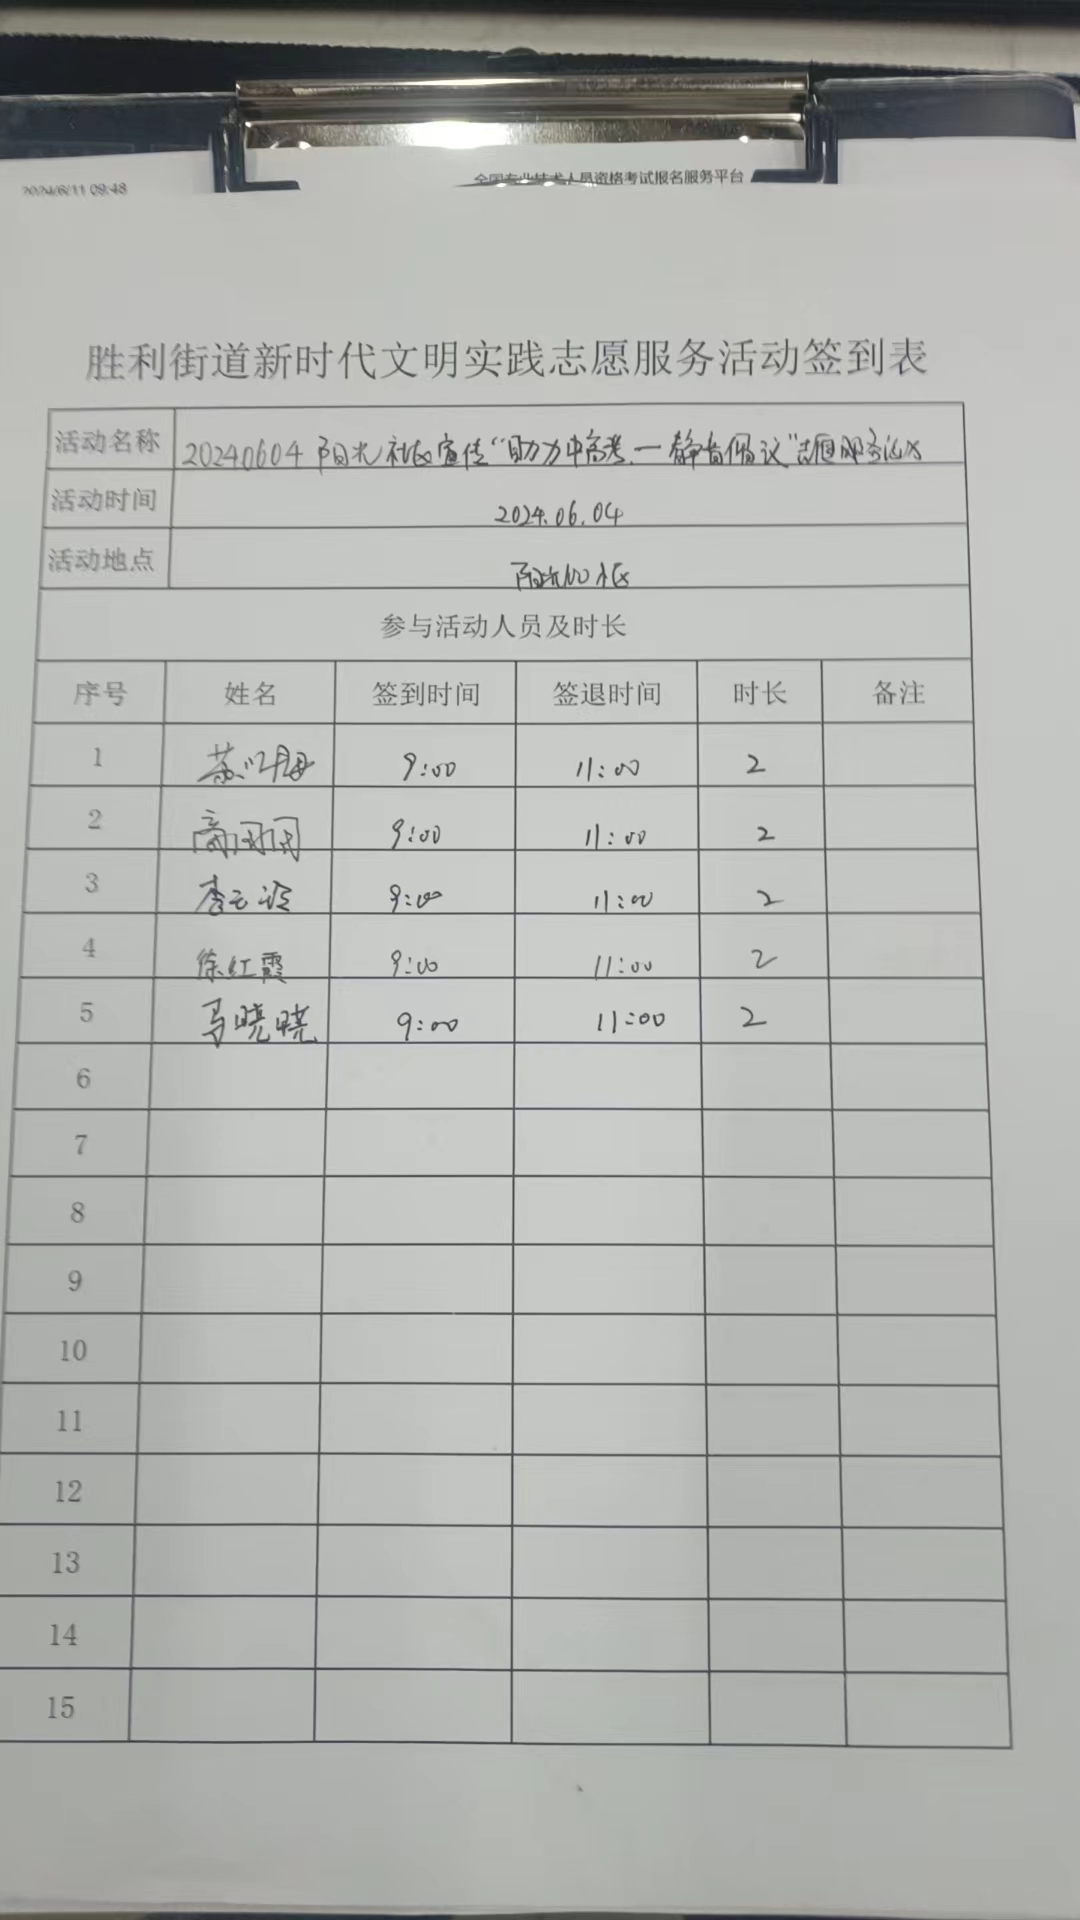 2024/6/11 09:48
全国专业技术人员资格考试报名服务平台
胜利街道新时代文明实践志愿服务活动签到表
活动名称 20240604阳光社区宣传“助力中高考、一静音倡议”志愿服务活动
活动时间 2024.06.04
活动地点 阳光社区
参与活动人员及时长
序号 姓名 签到时间 签退时间 时长 备注
1 9:00 11:00 2
2 高闪闪 9:00 11:00 2
3 9:00 11:00 2
4 徐红霞 9:00 11:00 2
5 马晓晓 9:00 11:00 2
6
7
8
9
10
11
12
13
14
15